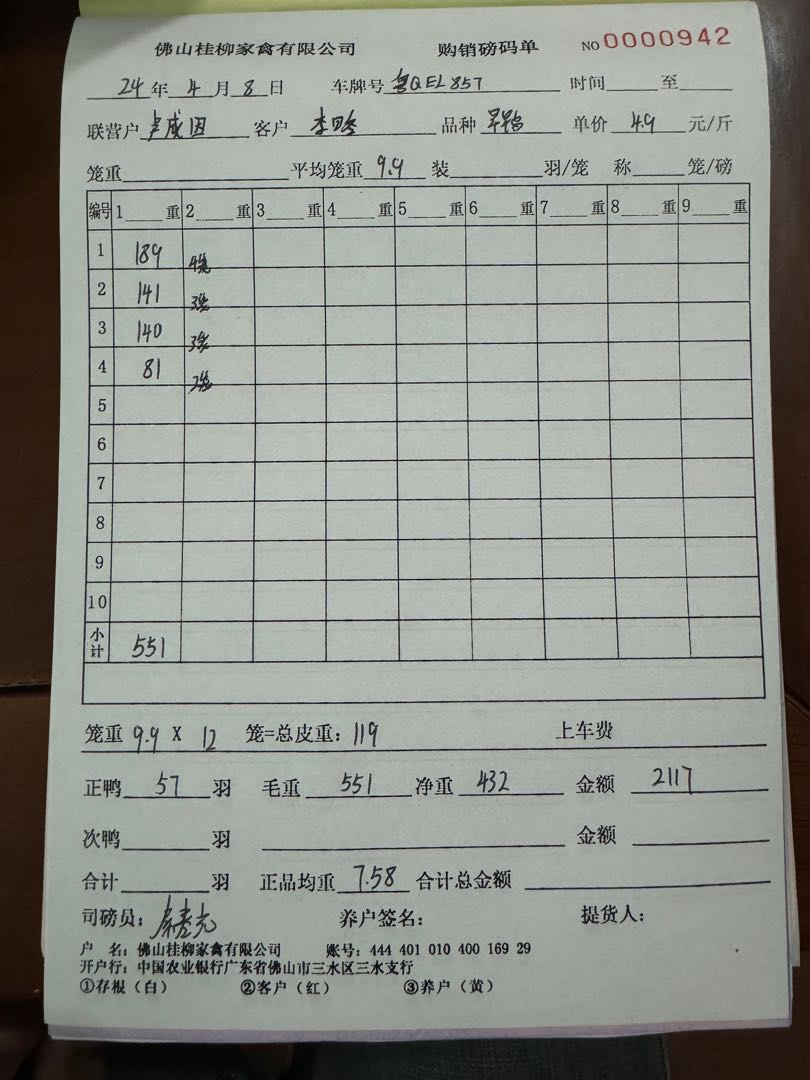 佛山桂柳家禽有限公司 购销磅码单 NO 0000942
24 年 4 月 8 日 车牌号 粤QEL857 时间 至
联营户 卢成因 客户 李 品种 单价 4.9 元/斤
笼重 平均笼重 9.9 装 羽/笼 称 笼/磅
编号 1 重 2 重 3 重 4 重 5 重 6 重 7 重 8 重 9 重
1 189 4笼
2 141 3笼
3 140 3笼
4 81 2笼
5
6
7
8
9
10
小计 551
笼重 9.9 X 12 笼=总皮重: 119 上车费
正鸭 57 羽 毛重 551 净重 432 金额 2117
次鸭 羽 金额
合计 羽 正品均重 7.58 合计总金额
司磅员: 养户签名: 提货人:
户 名: 佛山桂柳家禽有限公司 账号: 444 401 010 400 169 29
开户行: 中国农业银行广东省佛山市三水区三水支行
①存根（白） ②客户（红） ③养户（黄）